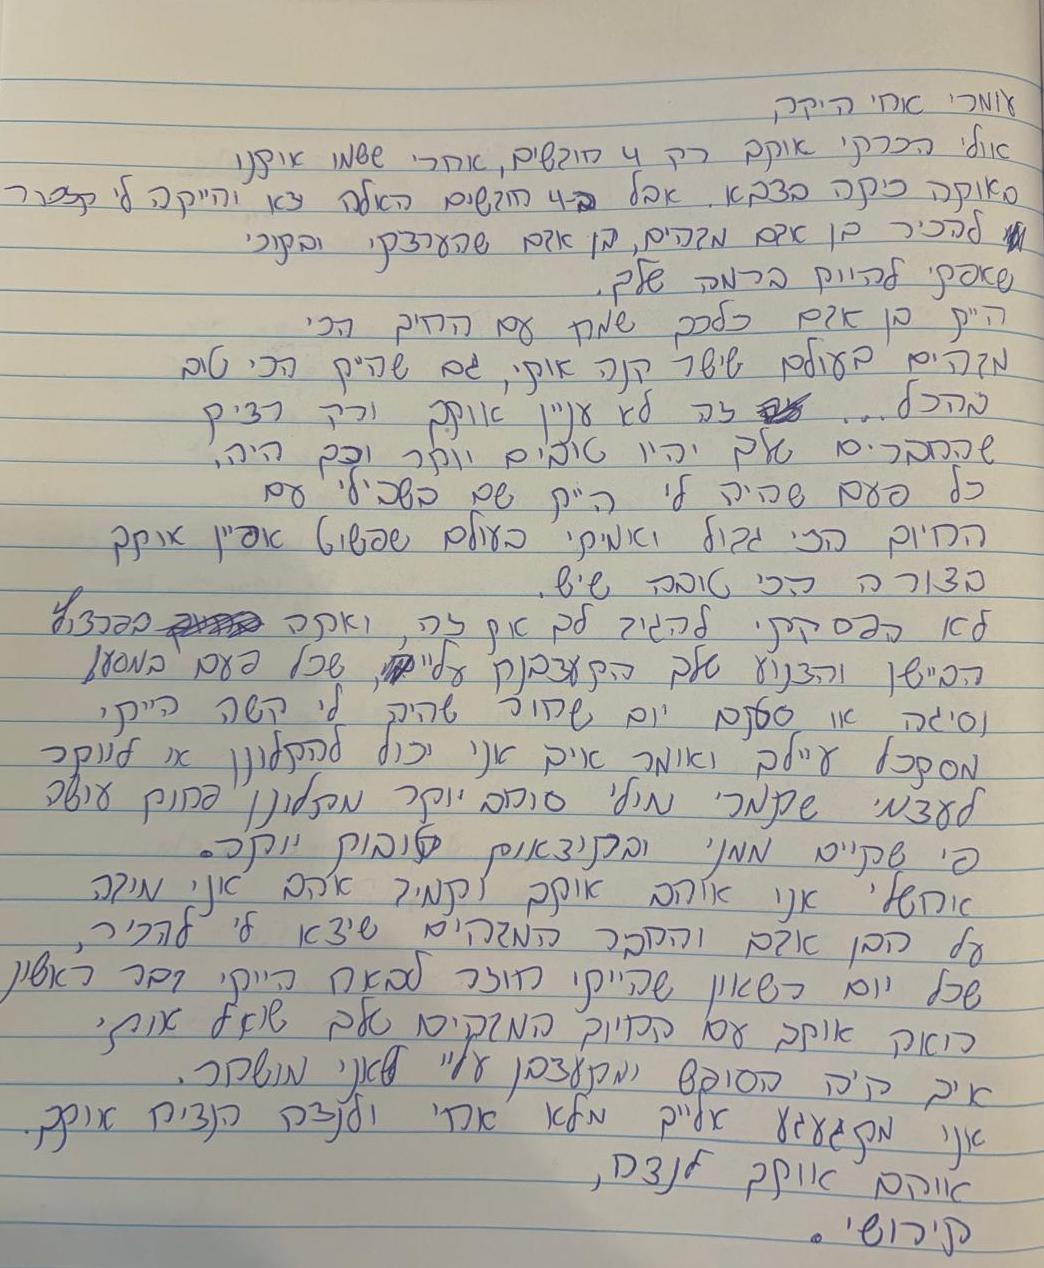 עומרי אחי היקר,
אולי הכרתי אותך רק 4 חודשים, אחרי ששמו אותנו
באותה כיתה בצבא. אבל ב-4 חודשים האלה יצא והייתה לי
להכיר בן אדם מדהים, בן אדם שהערצתי ובתוכי
שאפתי להיות ברמה שלך.
היית בן אדם כלכך שמח עם החיוך הכי
מדהים בעולם שישר קנה אותי, גם שהיית הכי טוב
מהכל... זה לא עניין אותך ורק רצית
שהחברים שלך יהיו טובים יותר וכך היה.
כל פעם שהיה לי היית שם בשבילי עם
החיוך הכי גדול ואמיתי בעולם שפשוט אפיין אותך
בצורה הכי טובה שיש.
לא הפסקתי להגיד לך את זה, ואתה בפרצוף
הביישן והצנוע שלך התעצבנת עליי, שכל פעם במסע
נסיגה או סתם יום שחור שהיה לי קשה הייתי
מסתכל עלייך ואומר איך אני יכול להתלונן או לוותר
לעצמי שתמרי מולי סוחב יותר מתלונן פחות עושה
פי שתיים ממני ובתוצאות טובות יותר.
אוחשלי אני אוהב אותך ותמיד אהב אני מודה
על הבן אדם והחבר המדהים שיצא לי להכיר,
שכל יום ראשון שהייתי חוזר לבאח הייתי דבר ראשון
רואה אותך עם החיוך המדהים שלך שואל אותי
איך היה הסופש ומתעצבן עליי שאני מושחר.
אני מתגעגע אלייך מלא אחי ולנצח הנציח אותך.
אוהב אותך לנצח,
תירושי.